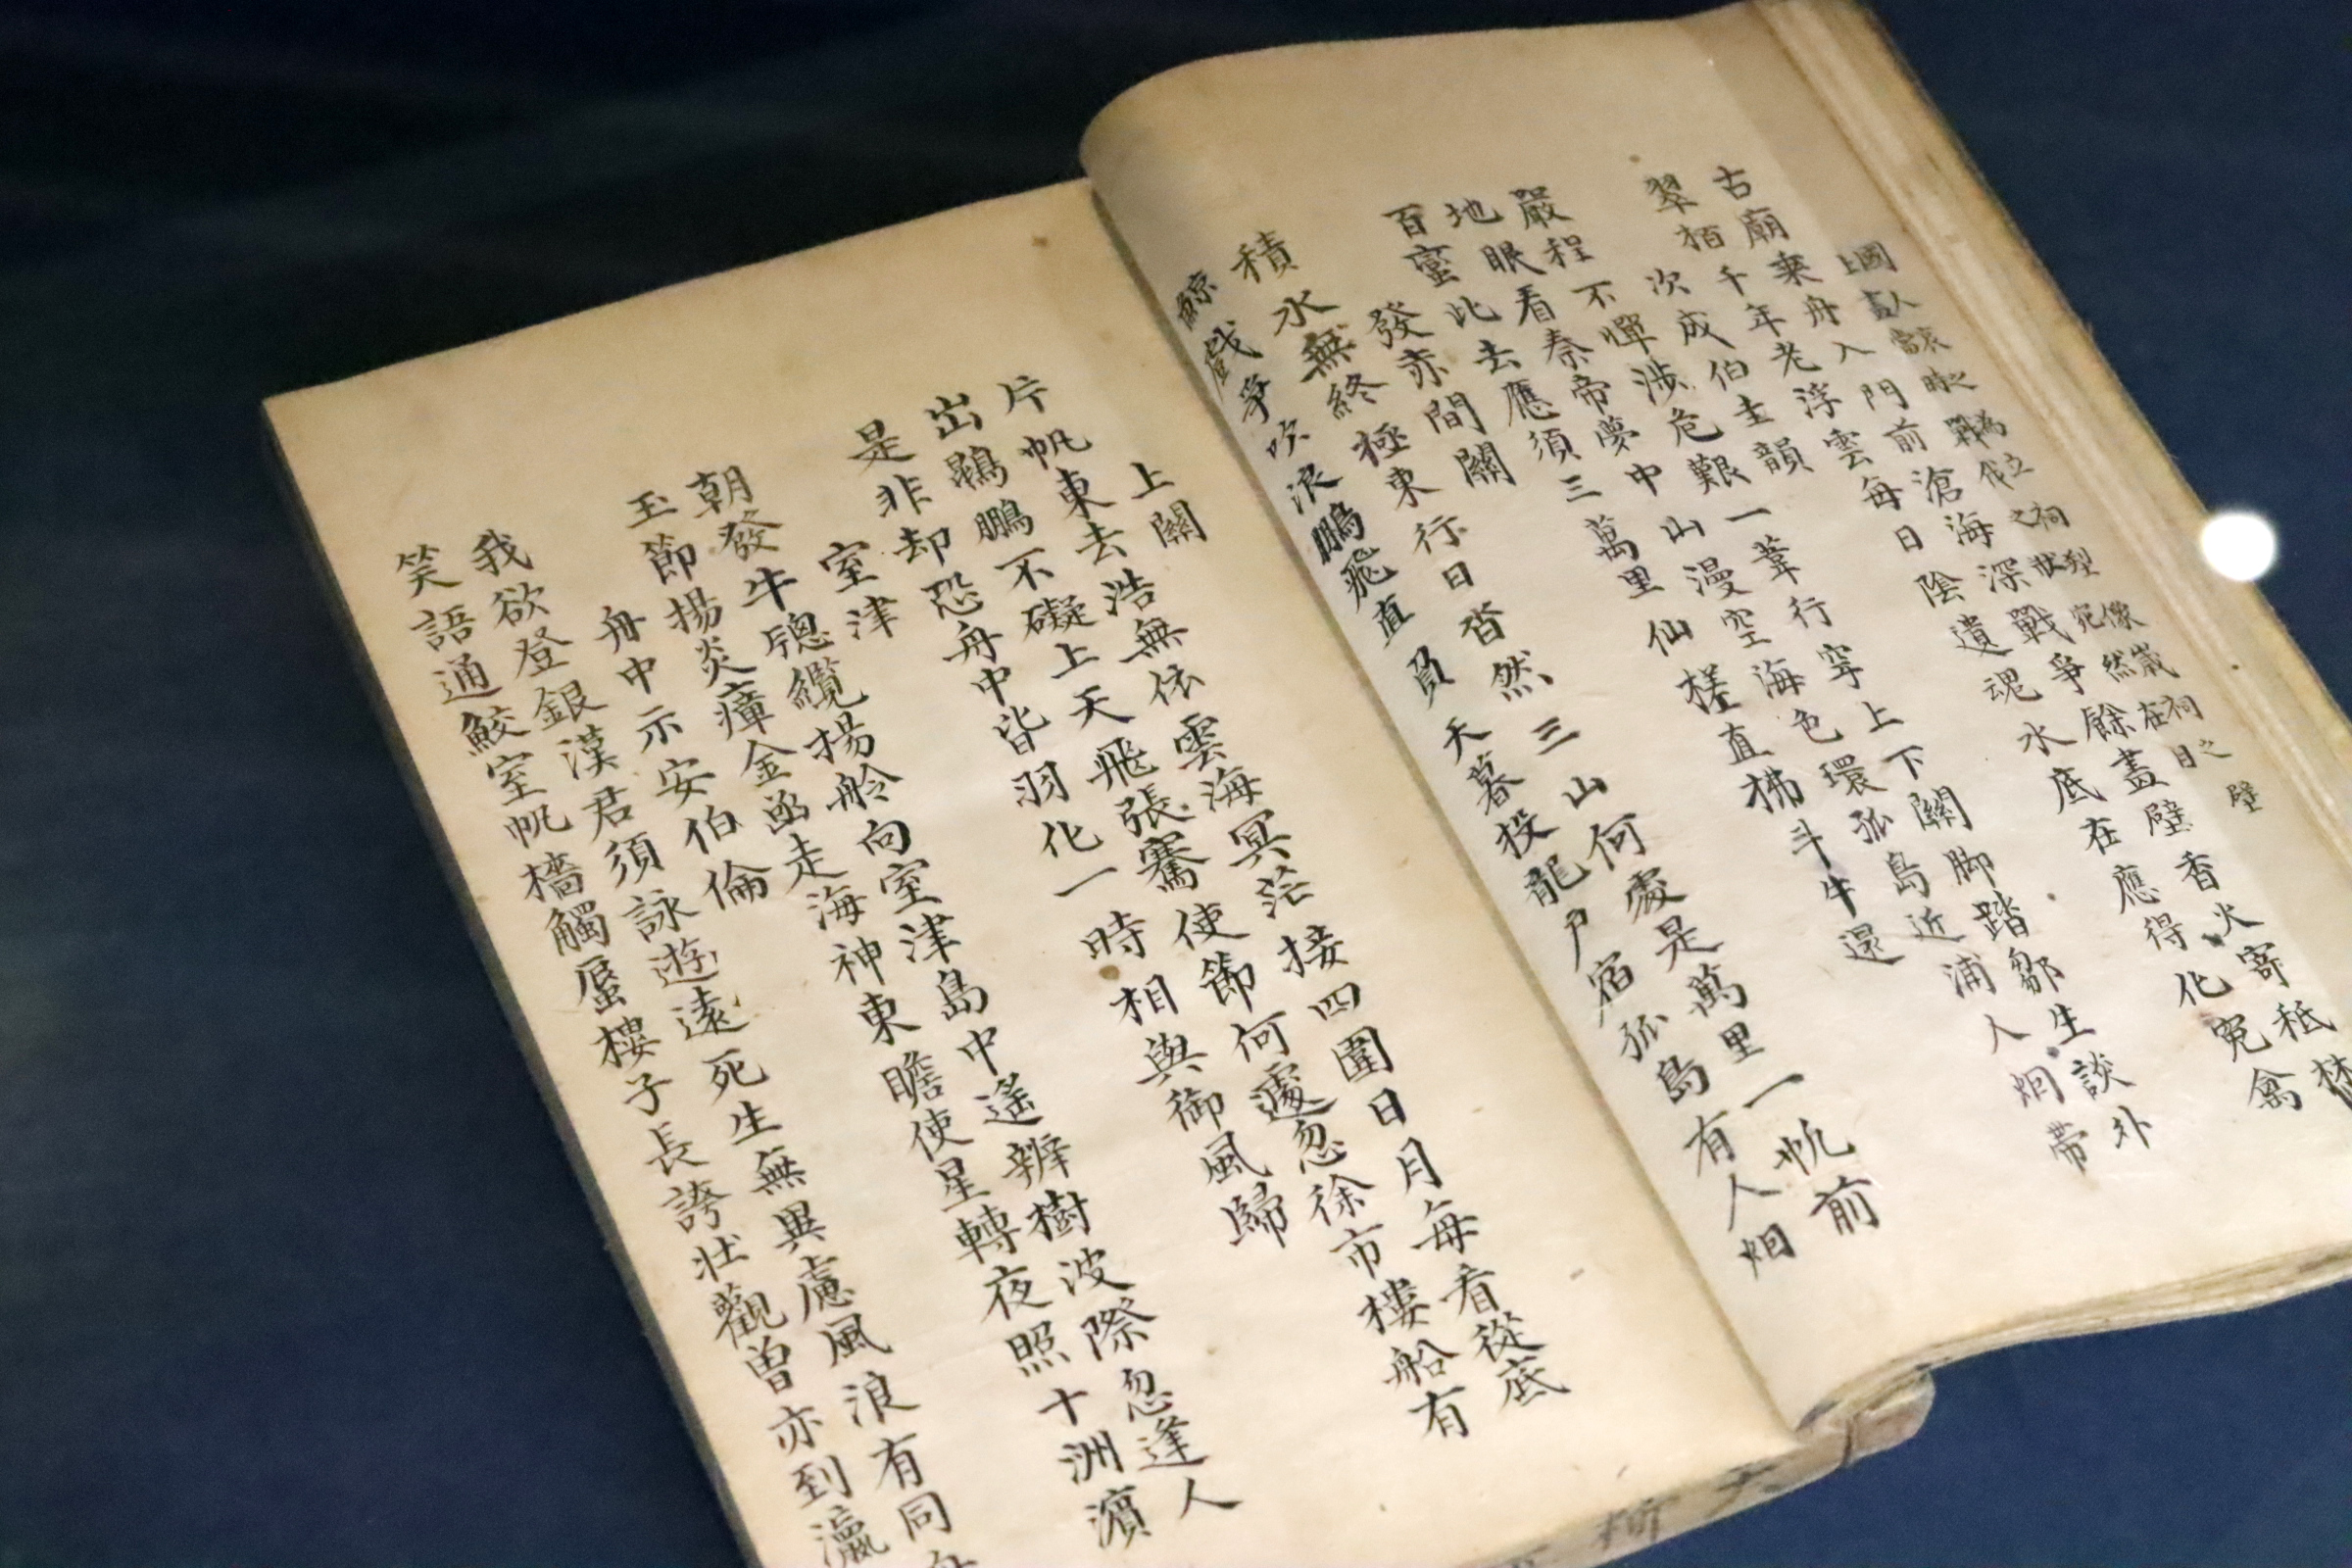 國人哀之為立祠塑像歲祠之壁
上畫當時戰伐之狀宛然在目
古廟乘舟入門前滄海深戰爭餘畫壁香火寄秪
翠栢千年老浮雲每日陰遺魂水底在應得化冤禽
次成伯圭韻
嚴程不憚涉危艱一葦行穿上下關脚踏鄒生談外
地眼看秦帝夢中山漫空海色環孤島近浦人烟帶
百蠻此去應須三萬里仙槎直拂斗牛還
發赤間關
積水無終極東行日沓然三山何處是萬里一帆前
鯨戲爭吹浪鵬飛直負天暮投龍戶宿孤島有人烟
上關
片帆東去浩無依雲海冥茫接四圍日月每看從底
出鵾鵬不礙上天飛張騫使節何遽忽徐市樓船有
是非却恐舟中皆羽化一時相與御風歸
室津
朝發牛窓纜揚舲向室津島中遙辨樹波際忽逢人
玉節揚炎瘴金函走海神東瞻使星轉夜照十洲濱
舟中示安伯倫
我欲登銀漢君須詠遊遠死生無異慮風浪有同舟
笑語通鮫室帆檣觸蜃樓子長誇壯觀曾亦到瀛